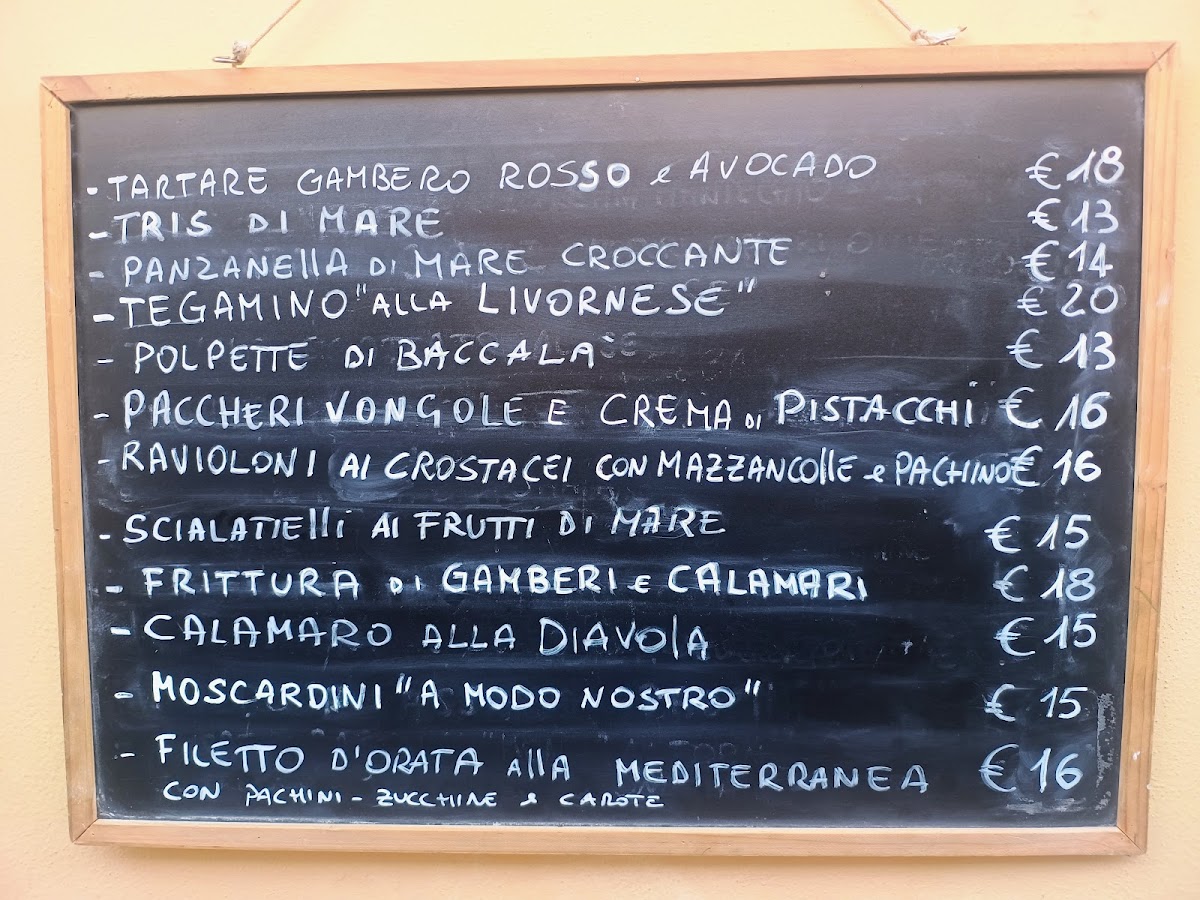 - TARTARE GAMBERO ROSSO e AVOCADO € 18
- TRIS DI MARE € 13
- PANZANELLA DI MARE CROCCANTE € 14
- TEGAMINO "ALLA LIVORNESE" € 20
- POLPETTE DI BACCALA' € 13
- PACCHERI VONGOLE E CREMA DI PISTACCHI € 16
- RAVIOLONI AI CROSTACEI CON MAZZANCOLLE e PACHINO € 16
- SCIALATIELLI AI FRUTTI DI MARE € 15
- FRITTURA DI GAMBERI E CALAMARI € 18
- CALAMARO ALLA DIAVOLA € 15
- MOSCARDINI "A MODO NOSTRO" € 15
- FILETTO D'ORATA ALLA MEDITERRANEA € 16
CON PACHINI - ZUCCHINE e CAROTE